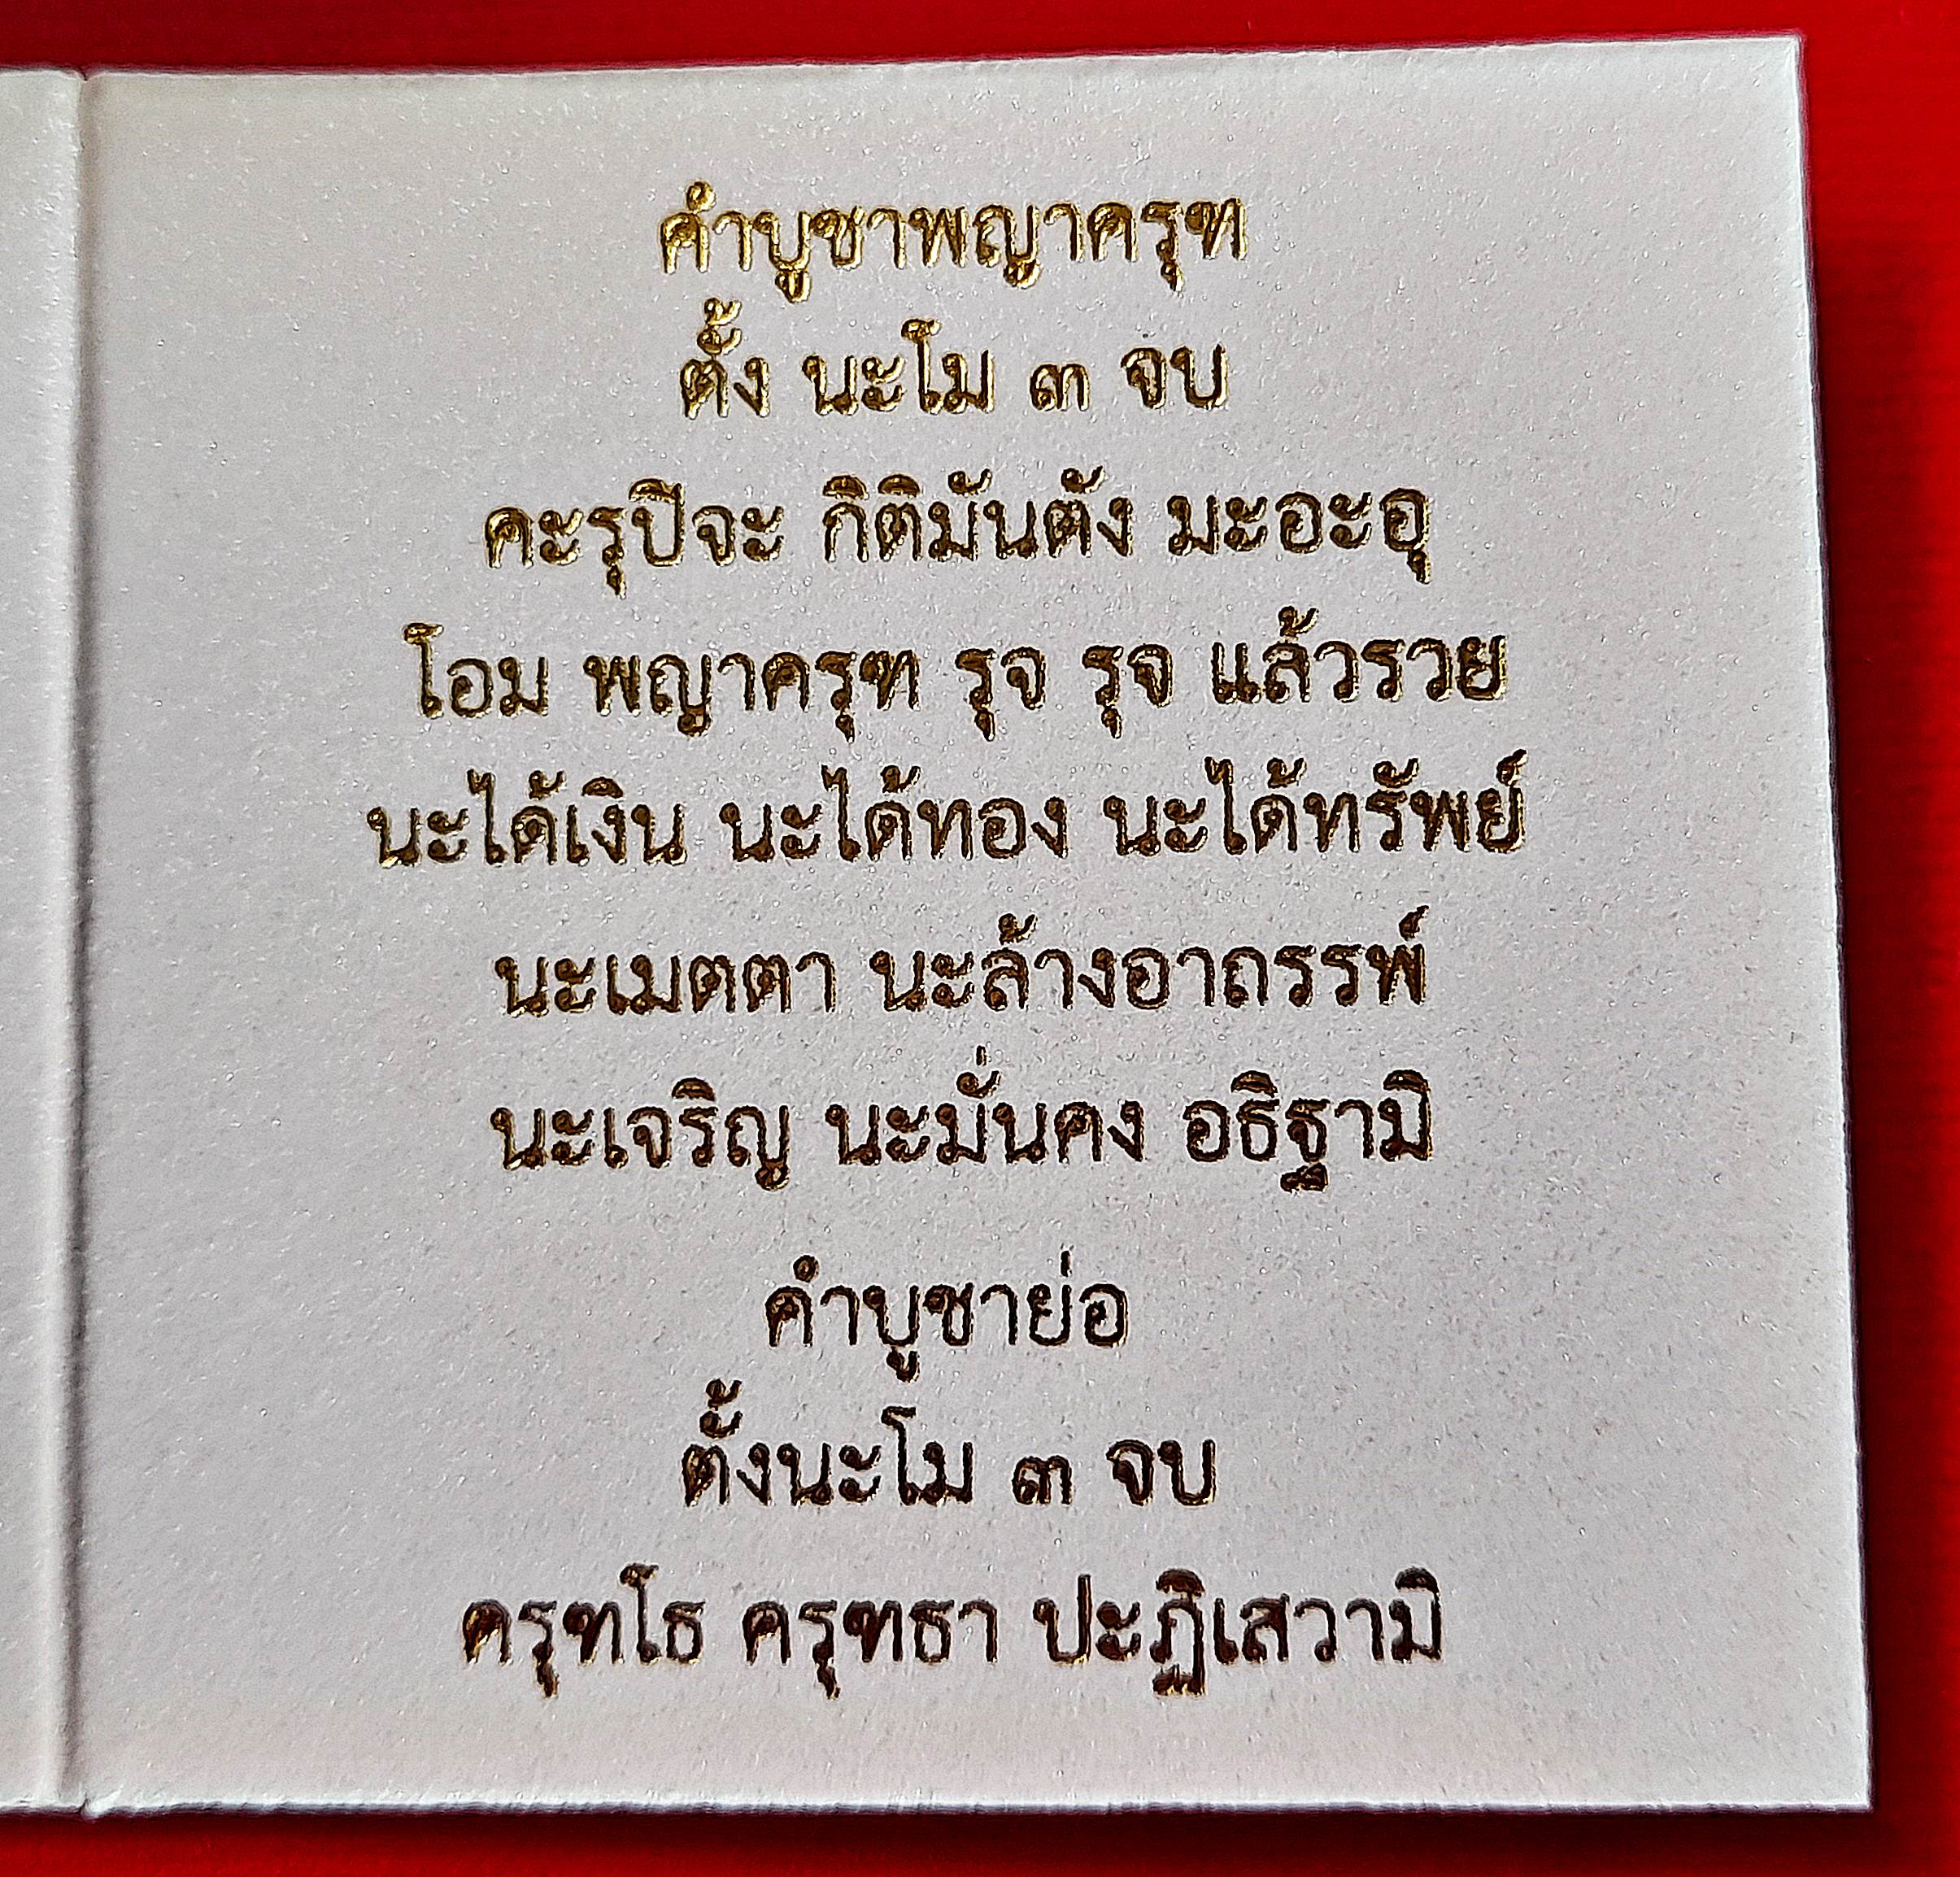 คำบูชาพญาครุฑ
ตั้ง นะโม ๓ จบ
คะรุปีจะ กิติมันตัง มะอะอุ
โอม พญาครุฑ รุจ รุจ แล้วรวย
นะได้เงิน นะได้ทอง นะได้ทรัพย์
นะเมตตา นะล้างอาถรรพ์
นะเจริญ นะมั่นคง อธิฐามิ
คำบูชาย่อ
ตั้งนะโม ๓ จบ
ครุฑโธ ครุฑธา ปะฏิเสวามิ